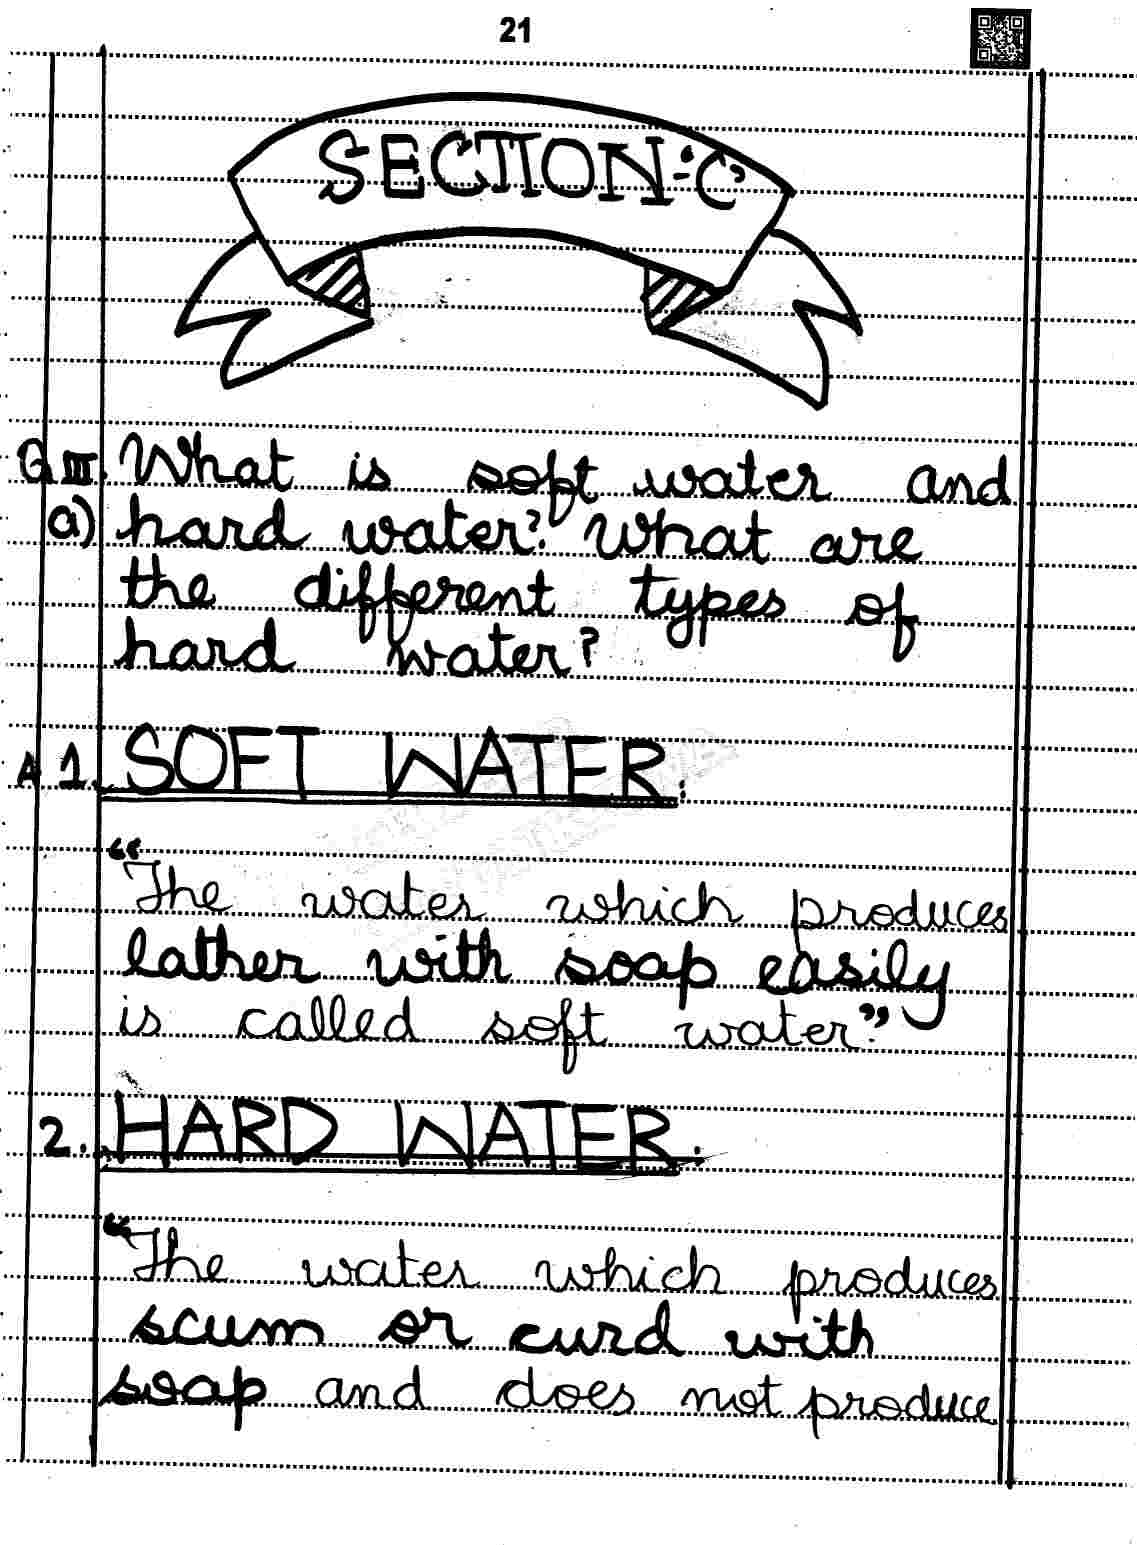 21
SECTION:-'C'
Q III. What is soft water and
a) hard water? What are
the different types of
hard water?
A 1. SOFT WATER:
"The water which produces
lather with soap easily
is called soft water."
2. HARD WATER:
"The water which produces
scum or curd with
soap and does not produce